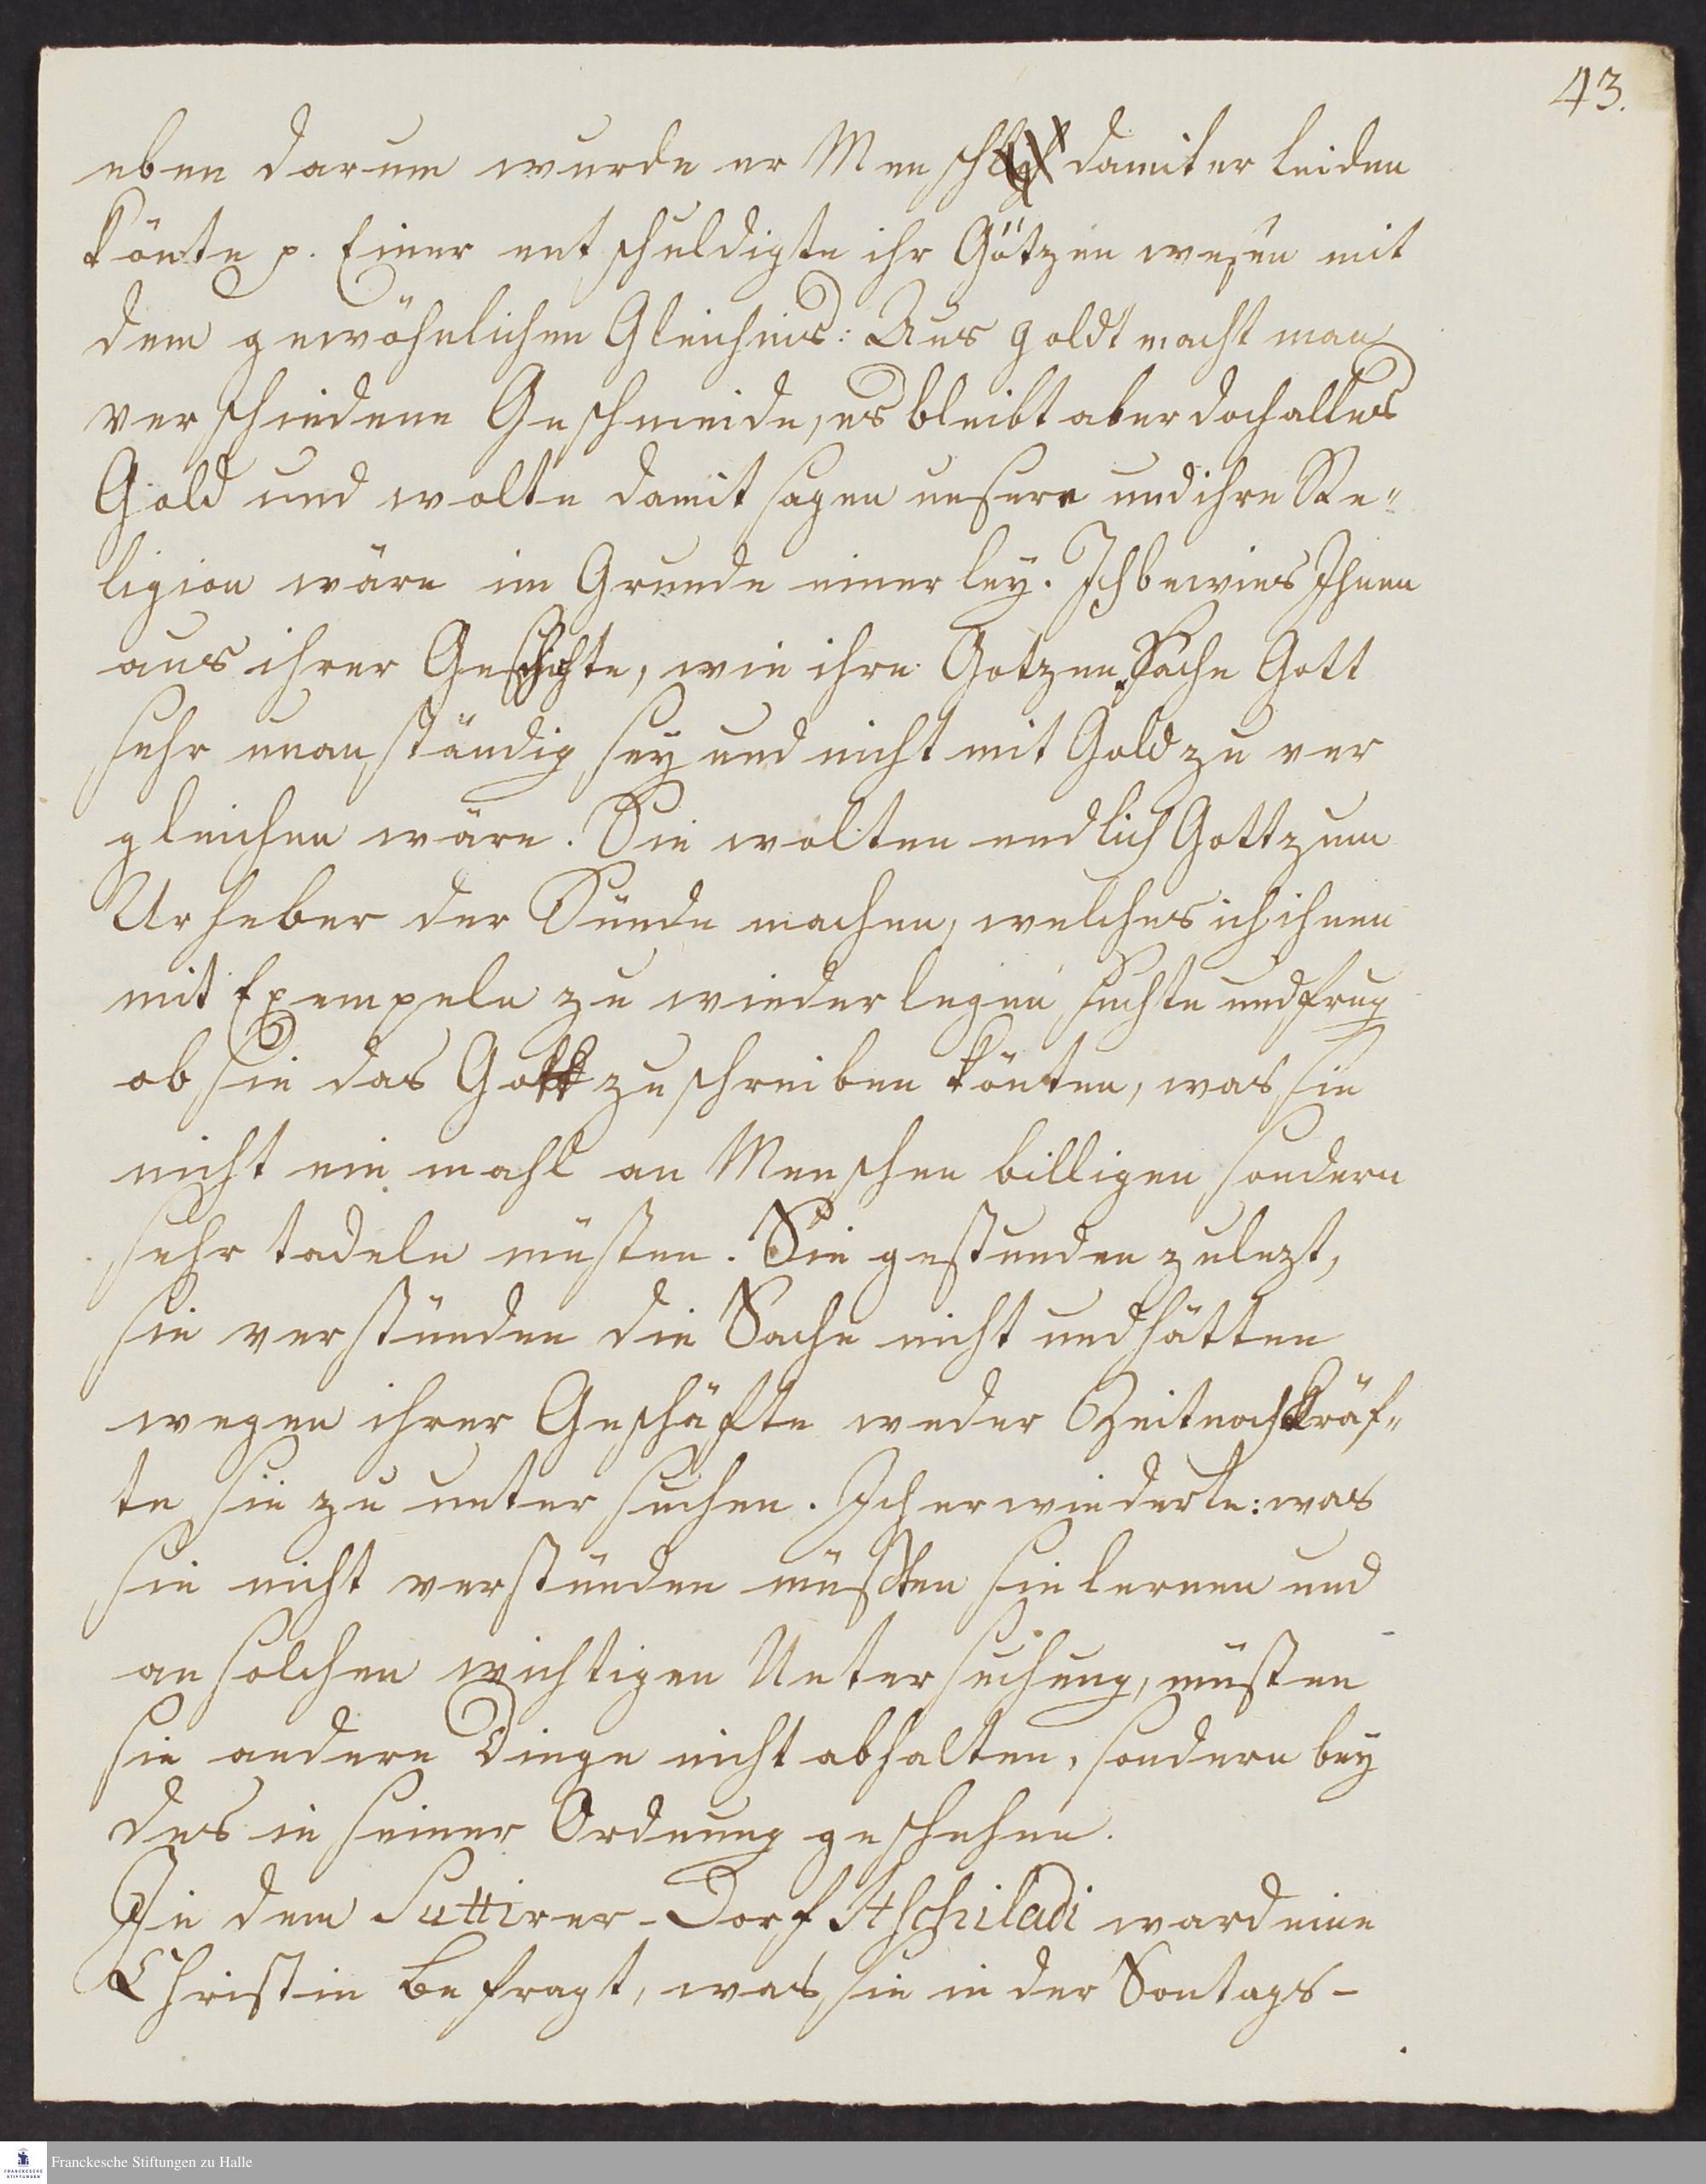 43.
eben darum wurde er Mensch damit er leiden
könte p. Einer entschuldigte ihr Götzen wesen mit
dem gewöhnlichen Gleichnis: Aus goldt macht man
verschiedene Geschmeide, es bleibt aber doch alles
Gold und wolte damit sagen unsere und ihre Re"
ligion wäre im Grunde einerley. Ich bewies Ihnen
aus ihrer Geschichte, wie ihre Götzen Sache Gott
sehr unanständig sey und nicht mit Gold zu ver
gleichen wäre. Sie wolten endlich Gott zum
Urheber der Sünde machen, welches ich ihnen
mit Exempeln zu wiederlegen suchte und frug
ob sie das Gott zuschreiben könten, was sie
nicht ein mahl an Menschen billigen sondern
sehr tadeln müsten. Sie gestunden zulezt,
sie verstünden die Sache nicht und hätten
wegen ihrer Geschäfte weder Zeit noch Kräf"
te sie zu untersuchen. Ich erwiederte: was
sie nicht verstünden müsten sie lernen und
an solchen wichtigen Untersuchung, müsten
sie andere Dinge nicht abhalten, sondern bey
des in seiner Ordnung geschehen.
In dem Suttirer-Dorf Atschiladi ward eine
Christin befragt, was sie in der Sontags-
Franckesche Stiftungen zu Halle
FRANCKESCHE
STIFTUNGEN